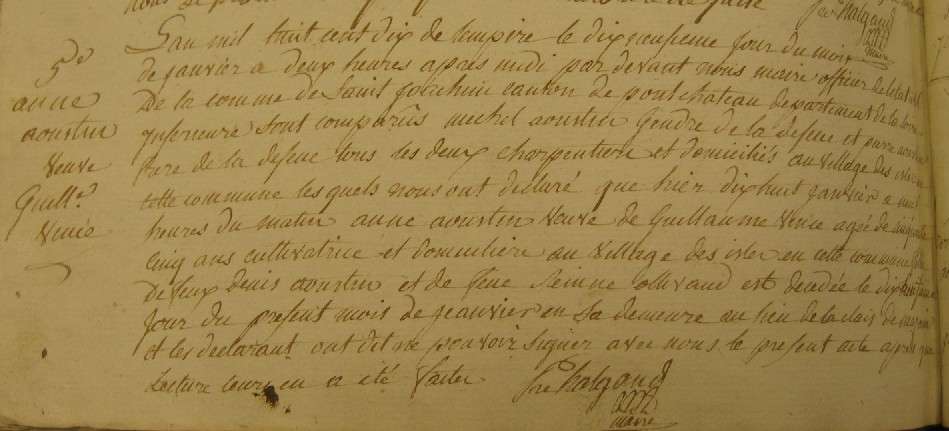 5e
anne
aoustin
veuve
Guille.
vinée
Lan mil huit cent dix de lempire le dix neufieme jour du mois
de janvier a deux heures apres midi par devant nous maire officier de letat civil
De la comme de Saint Joachim canton de pontchateau departement de la loire
inferieure sont comparûs michel aoustin Gendre de la defeue et pierre aoustin
frere de la defeue tous les deux charpentiers et domiciliés au village des isles en
cette commune les quels nous ont declaré que hier dix huit janvier a
heures du matin anne aoustin veuve de Guillaume vince agée de cinquante
cinq ans cultivatrice et domiciliere au village des isles en cette commune fille
De feux denis aoustin et de feue ollivaud est decedée le dix huitieme
jour du present mois de jeanvier en sa demeure au lieu de
et les declarant ont dit ne pouvoir signer avec nous le present acte apres que
Lecture leurs en a été faitte
halgand
maire